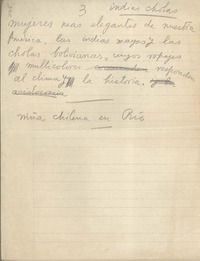 3 indias cholas
mujeres mas elegantes de nuestra
América, las indias mayas y las
cholas bolivianas, cuyos ropajes
multicolores responden
al clima y la historia.
niña chilena en Río